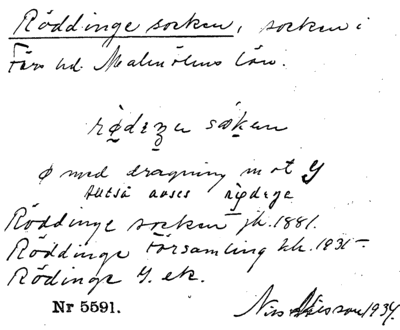 Röddinge socken, socken i
Färs hd. Malmöhus län.
rød𝑒ŋ𝑒n sók𝑒n
ø med dragning mot y
Alltså avses
Röddinge socken jb. 1881.
Röddinge Församling kk. 1931-
Rödinge Y. ek.
Nr 5591.
Nils Nilsson 1934.